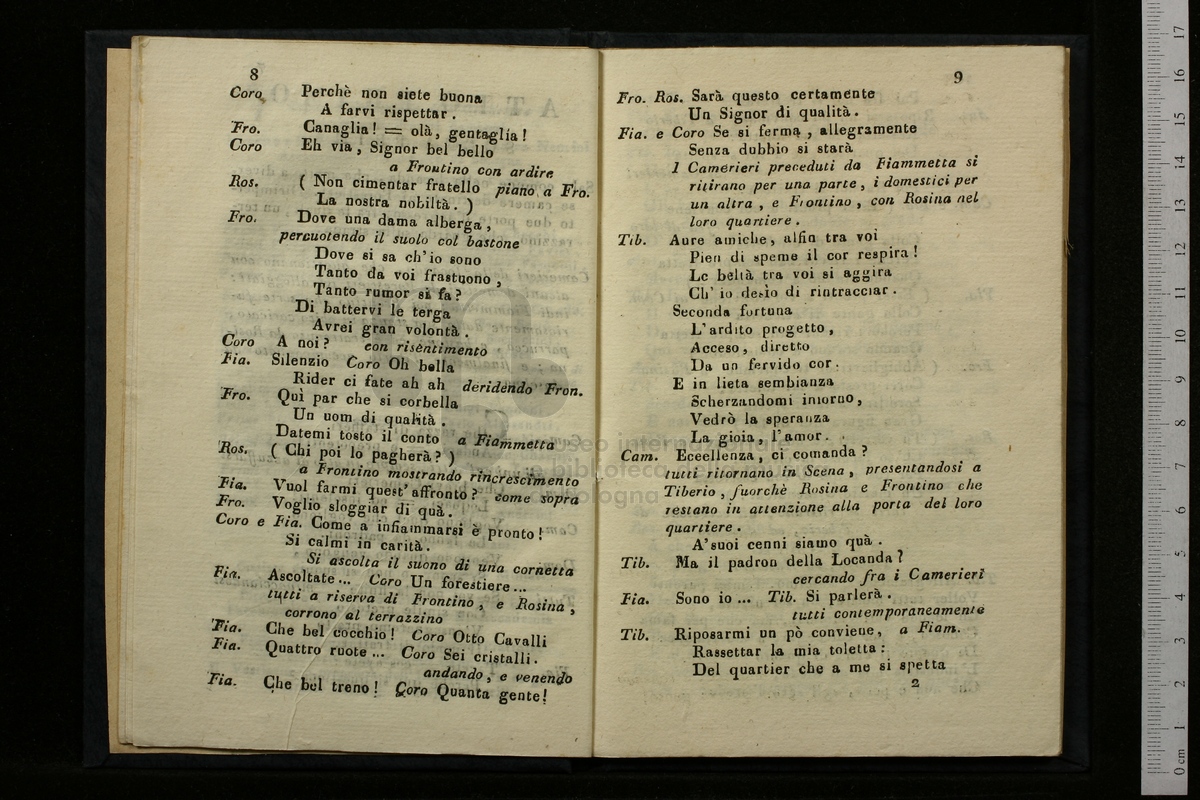 8
Coro Perchè non siete buona
A farvi rispettar.
Fro. Canaglia! = olà, gentaglia!
Coro Eh via, Signor bel bello
a Frontino con ardire
Ros. ( Non cimentar fratello piano a Fro.
La nostra nobiltà. )
Fro. Dove una dama alberga,
percuotendo il suolo col bastone
Dove si sa ch'io sono
Tanto da voi frastuono,
Tanto rumor si fa?
Di battervi le terga
Avrei gran volontà.
Coro A noi? con risentimento
Fia. Silenzio Coro Oh bella
Rider ci fate ah ah deridendo Fron.
Fro. Quì par che si corbella
Un uom di qualità.
Datemi tosto il conto a Fiammetta
Ros. ( Chi poi lo pagherà? )
a Frontino mostrando rincrescimento
Fia. Vuol farmi quest' affronto? come sopra
Fro. Voglio sloggiar di quà.
Coro e Fia. Come a infiammarsi è pronto!
Si calmi in carità.
Si ascolta il suono di una cornetta
Fia. Ascoltate... Coro Un forestiere...
tutti a riserva di Frontino, e Rosina,
corrono al terrazzino
Fia. Che bel cocchio! Coro Otto Cavalli
Fia. Quattro ruote... Coro Sei cristalli.
andando, e venendo
Fia. Che bel treno! Coro Quanta gente!
9
Fro. Ros. Sarà questo certamente
Un Signor di qualità.
Fia. e Coro Se si ferma, allegramente
Senza dubbio si starà
I Camerieri preceduti da Fiammetta si
ritirano per una parte, i domestici per
un altra, e Frontino, con Rosina nel
loro quartiere.
Tib. Aure amiche, alfin tra voi
Pien di speme il cor respira!
Le beltà tra voi si aggira
Ch' io desìo di rintracciar.
Seconda fortuna
L'ardito progetto,
Acceso, diretto
Da un fervido cor.
E in lieta sembianza
Scherzandomi intorno,
Vedrò la speranza
La gioia, l'amor.
Cam. Eccellenza, ci comanda?
tutti ritornano in Scena, presentandosi a
Tiberio, fuorchè Rosina e Frontino che
restano in attenzione alla porta del loro
quartiere.
A'suoi cenni siamo quà.
Tib. Ma il padron della Locanda?
cercando fra i Camerieri
Fia. Sono io... Tib. Si parlerà.
tutti contemporaneamente
Tib. Riposarmi un pò conviene, a Fiam.
Rassettar la mia toletta:
Del quartier che a me si spetta
2